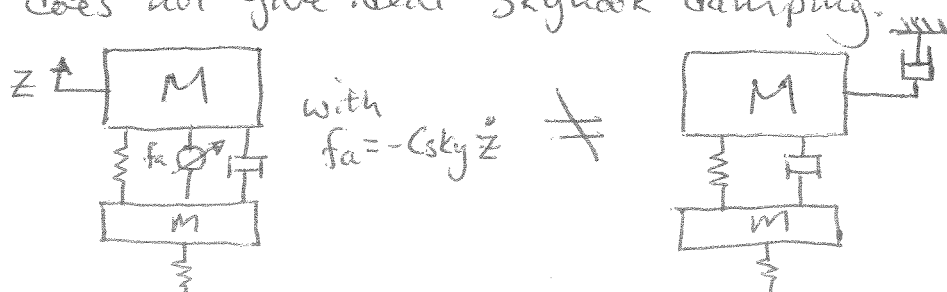 does not give ideal skyhook damping.
Z M with M
fa fa = -Csky ż ≠
m m